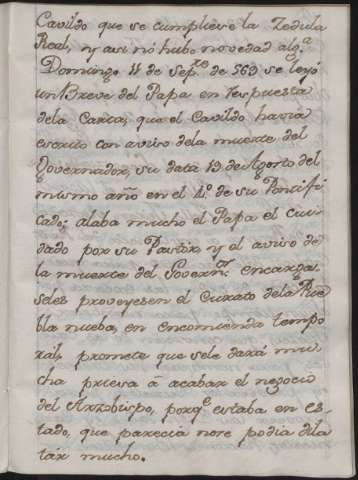 Cavildo que se cumpliese la Zedula
Real, y asi nó hubo novedad alg.ª
Domingo 11 de Sep.re de 569 se leyó
un Breve del Papa en respuesta
dela Carta, que el Cavildo havia
escrito con aviso dela muerte del
Governador, su data 19 de Agosto del
mismo año en el 4.º de su Pontifi
cado; alaba mucho el Papa el cui
dado por su Pastór, y el aviso de
la muerte del Govern.r encarga
seles proveyesen el Curato dela Pue
bla nueba, en encomienda tempo
rál, promete que sele dará mu
cha priesa á acabar el negocio
del Arzobispo, porq.e estaba en es-
tado, que parecia nose podia dila
tár mucho.